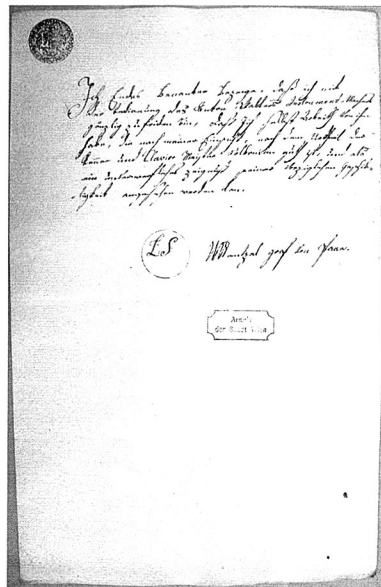 Ich Endes Benanter bezeuge, daß ich mit
der Bedienung des Anton Walter Instrument-Macher
gänzlich zufrieden bin, daß ich selbst Arbeith von ihm
habe, die nach meiner Einsicht, nach dem Urtheil der
Kenner und Clavier Meister vollkommen gut ist, und als
ein unverwerfliches Zeugniß seiner vorzüglichen Geschik-
lichkeit angesehen werden kan.
LS
Wentzel graf von Paar.
Archiv
der Stadt Wien